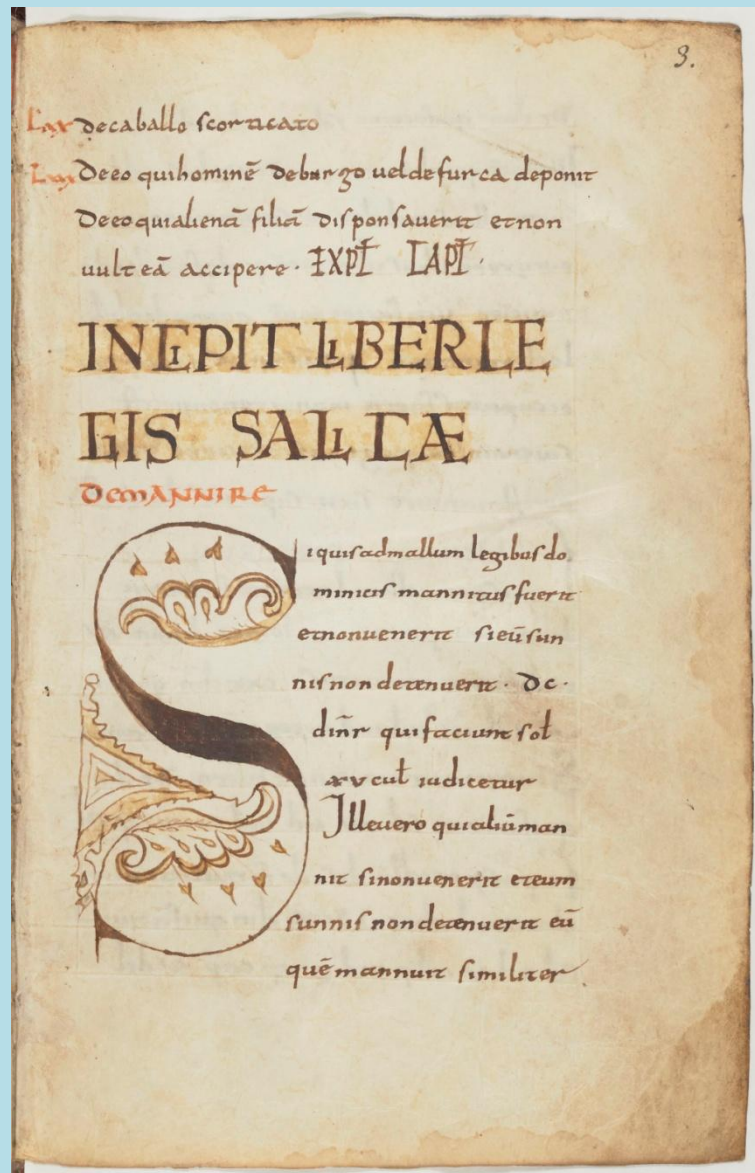 3.
Lxx de caballo scorticato
Lxxi De eo qui hominē de bargo vel de furca deponit
De eo qui alienā filiā disponsaverit et non
vult eā accipere · EXPŁ CAPŁ ·
INCIPIT LIBER LE
GIS SALICÆ
DE MANNIRE
Si quis ad mallum legibus do
minicis mannitus fuerit
et non venerit si eū sun
nis non detenuerit · DC ·
dinr̄ qui faciunt soł
xv cuł iudicetur
Ille vero qui aliū man
nit si non venerit et eum
sunnis non detenuerit eū
quē mannuit similiter